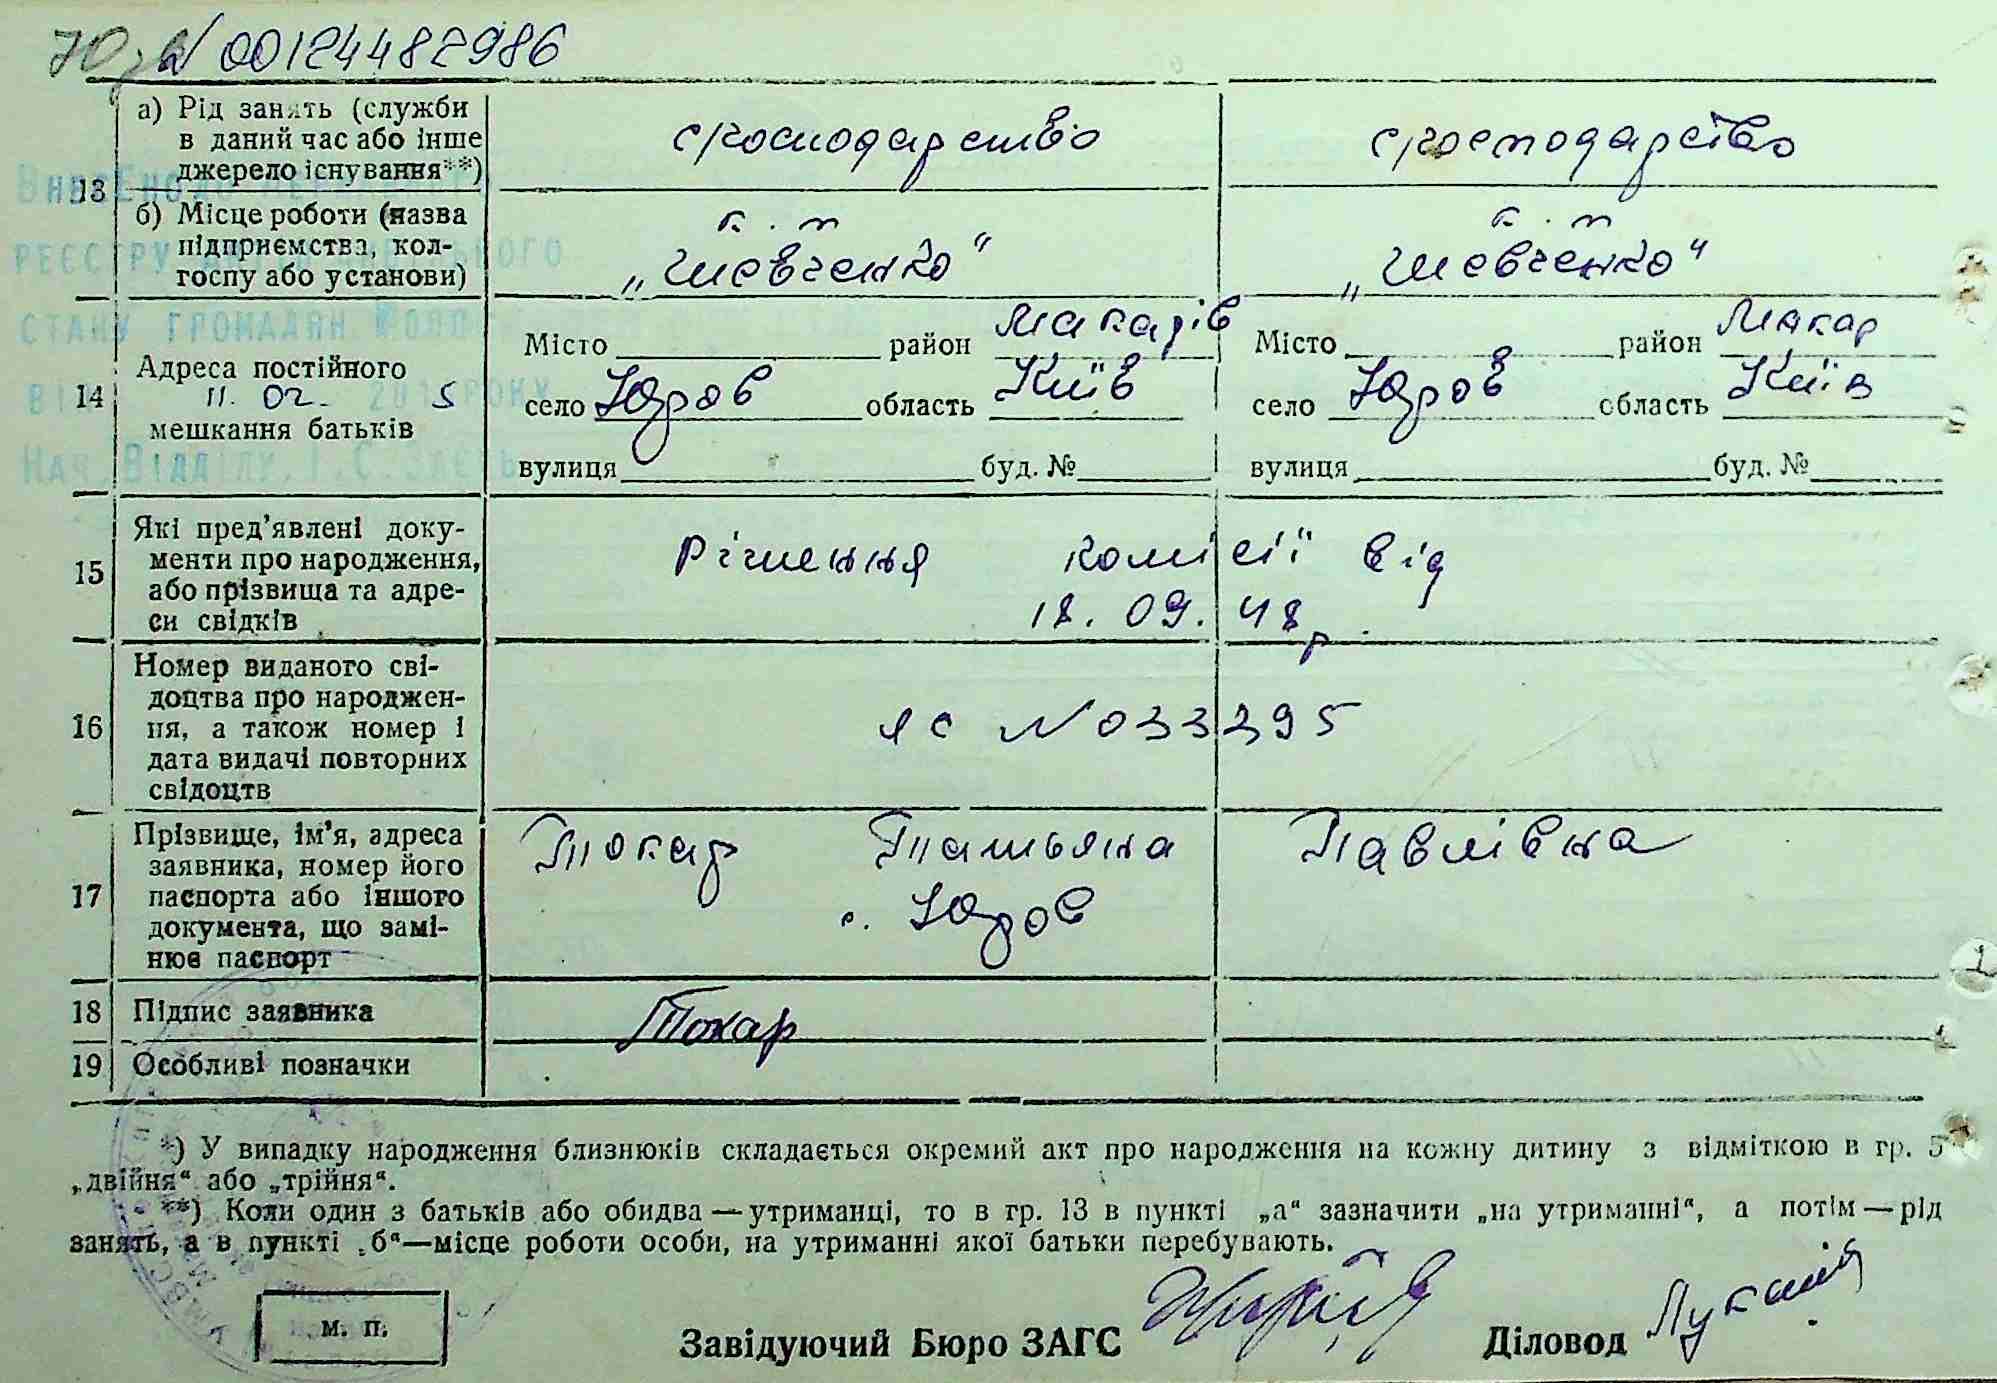 № 00124482986
а) Рід занять (служби
в даний час або інше
джерело існування**)
с/господарство
с/господарство
13
б) Місце роботи (назва
підприємства, кол-
госпу або установи)
к. п
„Шевченко“
к. п
„Шевченко“
РЕЄСТРУ
СТАНУ ГРОМАДЯН
11. 02. 2015 РОКУ
НАЧ. ВІДДІЛУ І.С.
14
Адреса постійного
мешкання батьків
Місто район Макарів
село Юров область Київ
вулиця буд. №
Місто район Макар
село Юров область Київ
вулиця буд. №
15
Які пред’явлені доку-
менти про народження,
або прізвища та адре-
си свідків
Рішення комісії від
18. 09. 48 р.
16
Номер виданого сві-
доцтва про народжен-
ня, а також номер і
дата видачі повторних
свідоцтв
ЯС № 033395
17
Прізвище, ім’я, адреса
заявника, номер його
паспорта або іншого
документа, що замі-
нює паспорт
Токар Татьяна Павлівна
с. Юров
18 Підпис заявника Токар
19 Особливі позначки
*) У випадку народження близнюків складається окремий акт про народження на кожну дитину з відміткою в гр. 5
„двійня“ або „трійня“.
**) Коли один з батьків або обидва — утриманці, то в гр. 13 в пункті „а“ зазначити „на утриманні“, а потім — рід
занять, а в пункті „б“—місце роботи особи, на утриманні якої батьки перебувають.
м. п.
Завідуючий Бюро ЗАГС
Діловод